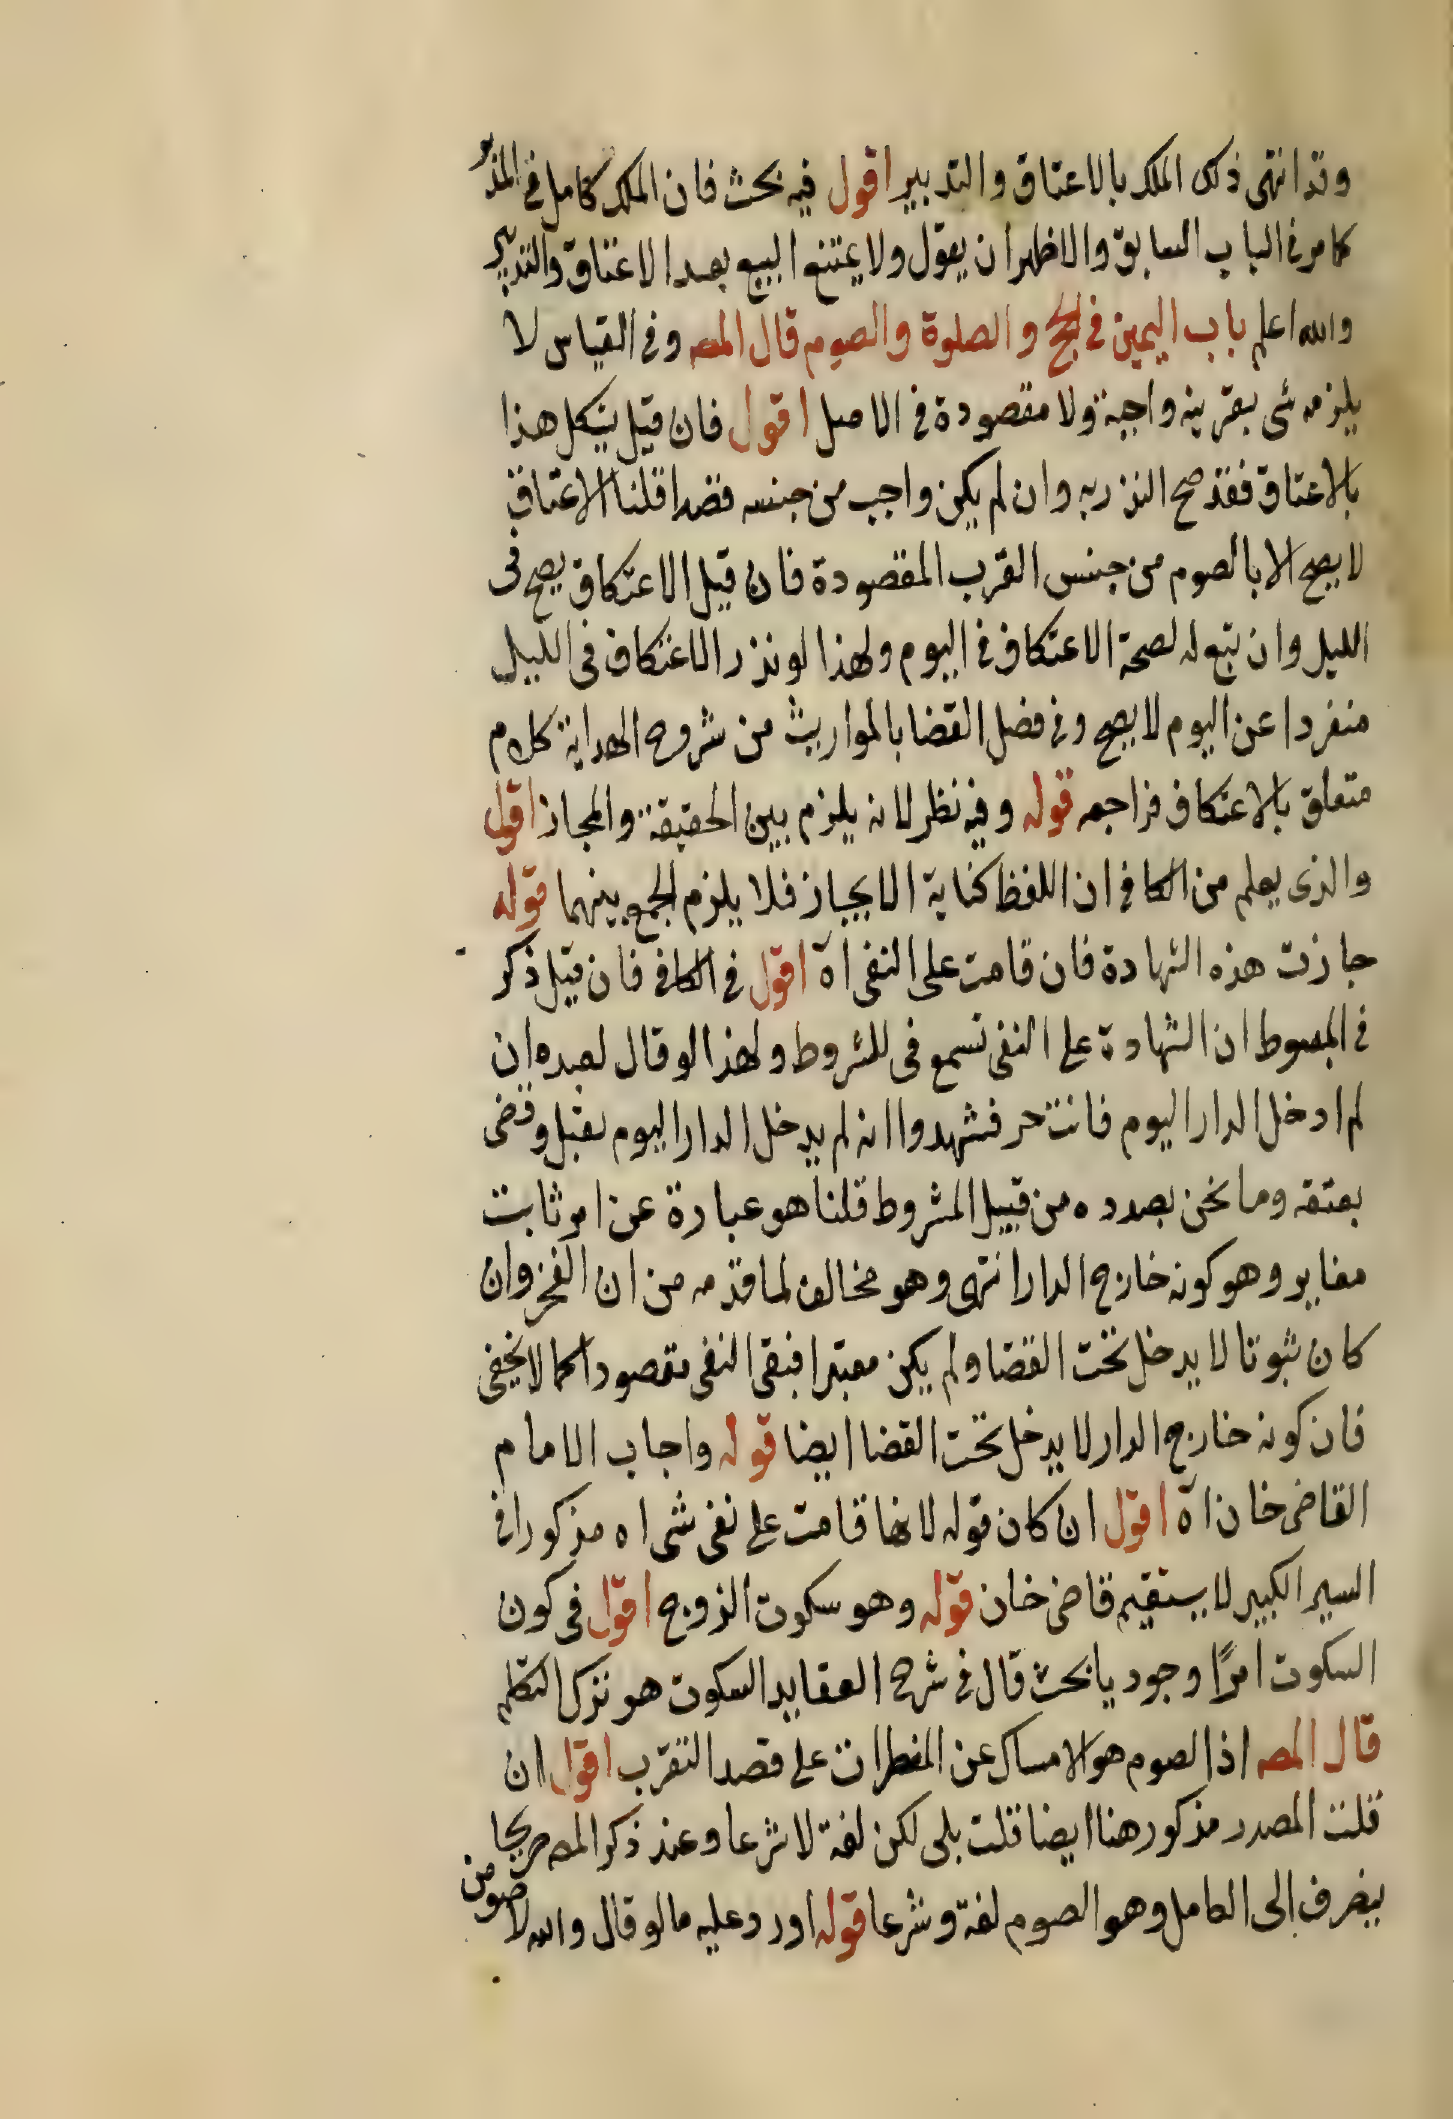 وقد انتهى ذلك الملك بالاعتاق والتدبير اقول فيه بحث فان الملك كامل في المدبر
كما مر في الباب السابق والاظهر ان يقول ولا يمتنع البيع بعد الاعتاق والتدبير
والله اعلم باب اليمين في الحج والصلوة والصوم قال المصه وفي القياس لا
يلزمه شى بقربة واجبة ولا مقصودة في الاصل اقول فان قيل يشكل هذا
بالاعتاق فقد صح النذر به وان لم يكن واجب من جنسه قصدا قلنا الاعتاق
لا يصح الا بالصوم من جنس القرب المقصودة فان قيل الاعتكاف يصح فى
الليل وان تبع له لصحة الاعتكاف في اليوم ولهذا لو نذر الاعتكاف فى الليل
منفردا عن اليوم لا يصح وفي فصل القضا بالمواريث من شروح الهداية كلام
متعلق بالاعتكاف فراجعه قوله وفيه نظر لانه يلزم بين الحقيقة والمجاز اقول
والذى يعلم من الكافي ان اللفظ كناية الايجاز فلا يلزم الجمع بينهما قوله
جازت هذه الشهادة فان قامت على النفى اه اقول في الكافي فان قيل ذكر
في المبسوط ان الشهادة على النفى تسمع فى للشروط ولهذا لو قال لعبده ان
لم ادخل الدار اليوم فانت حر فشهدوا انه لم يدخل الدار اليوم يقبل وقضى
بعتقه وما نحن بصدده من قبيل المشروط قلنا هو عبارة عن امر ثابت
مغاير وهو كونه خارج الدار انتهى وهو مخالف لما قدمه من ان النحر وان
كان ثبوتا لا يدخل تحت القضا ولم يكن معتبرا فبقى النفى مقصودا كما لا يخفى
فان كونه خارج الدار لا يدخل تحت القضا ايضا قوله واجاب الامام
القاضى خان اه اقول ان كان قوله لانها قامت على نفى شى اه مذكورا في
السير الكبير لا يستقيم قاضى خان قوله وهو سكوت الزوج اقول فى كون
السكوت امرًا وجوديا بحث قال في شرح العقايد السكوت هو ترك التكلم
قال المصه اذ الصوم هو الامساك عن المفطرات على قصد التقرب اقول ان
قلت المصدر مذكور هنا ايضا قلت بلى لكن لغة لا شرعا وعند ذكر المصه صريحا
ينصرف الى الكامل وهو الصوم لغة وشرعا قوله اورد عليه ما لو قال والله لا صومن